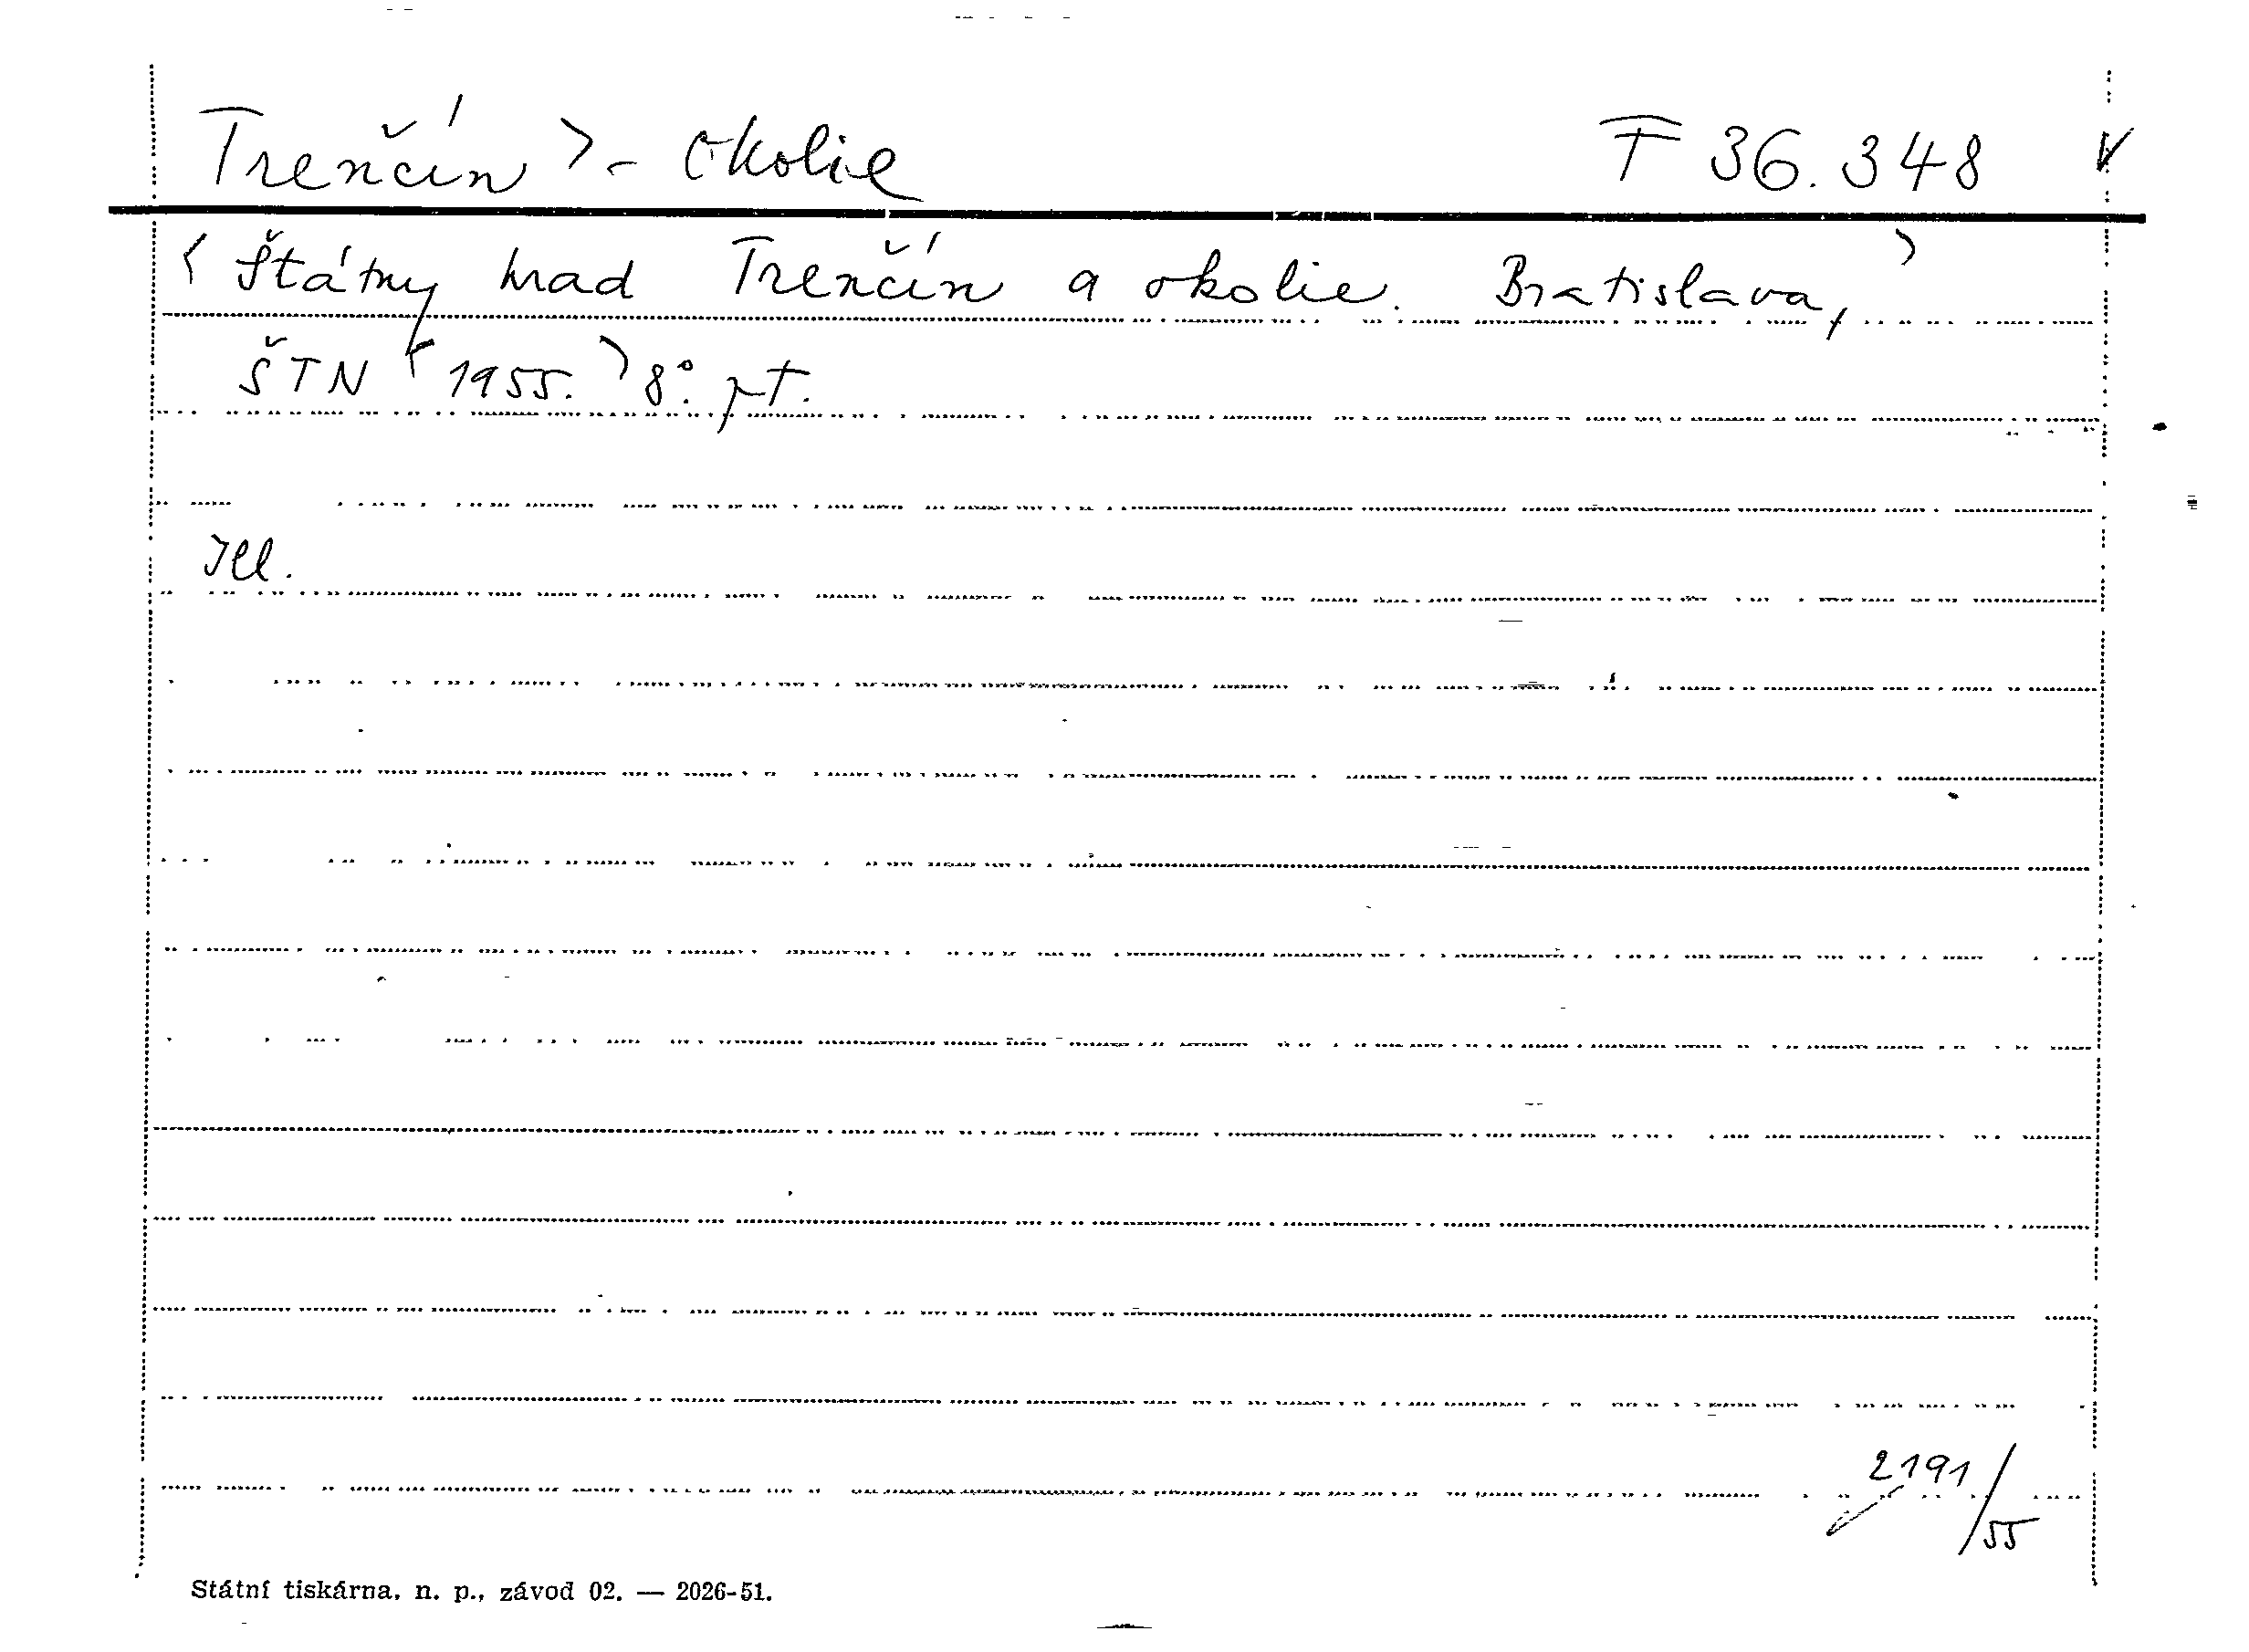 Trenčín > - okolie F 36.348 V
< Štátny hrad Trenčín a okolie. Bratislava, >
ŠTN < 1955. > 8°. pt.
Ill.
2191/55
Státní tiskárna, n. p., závod 02. — 2026-51.